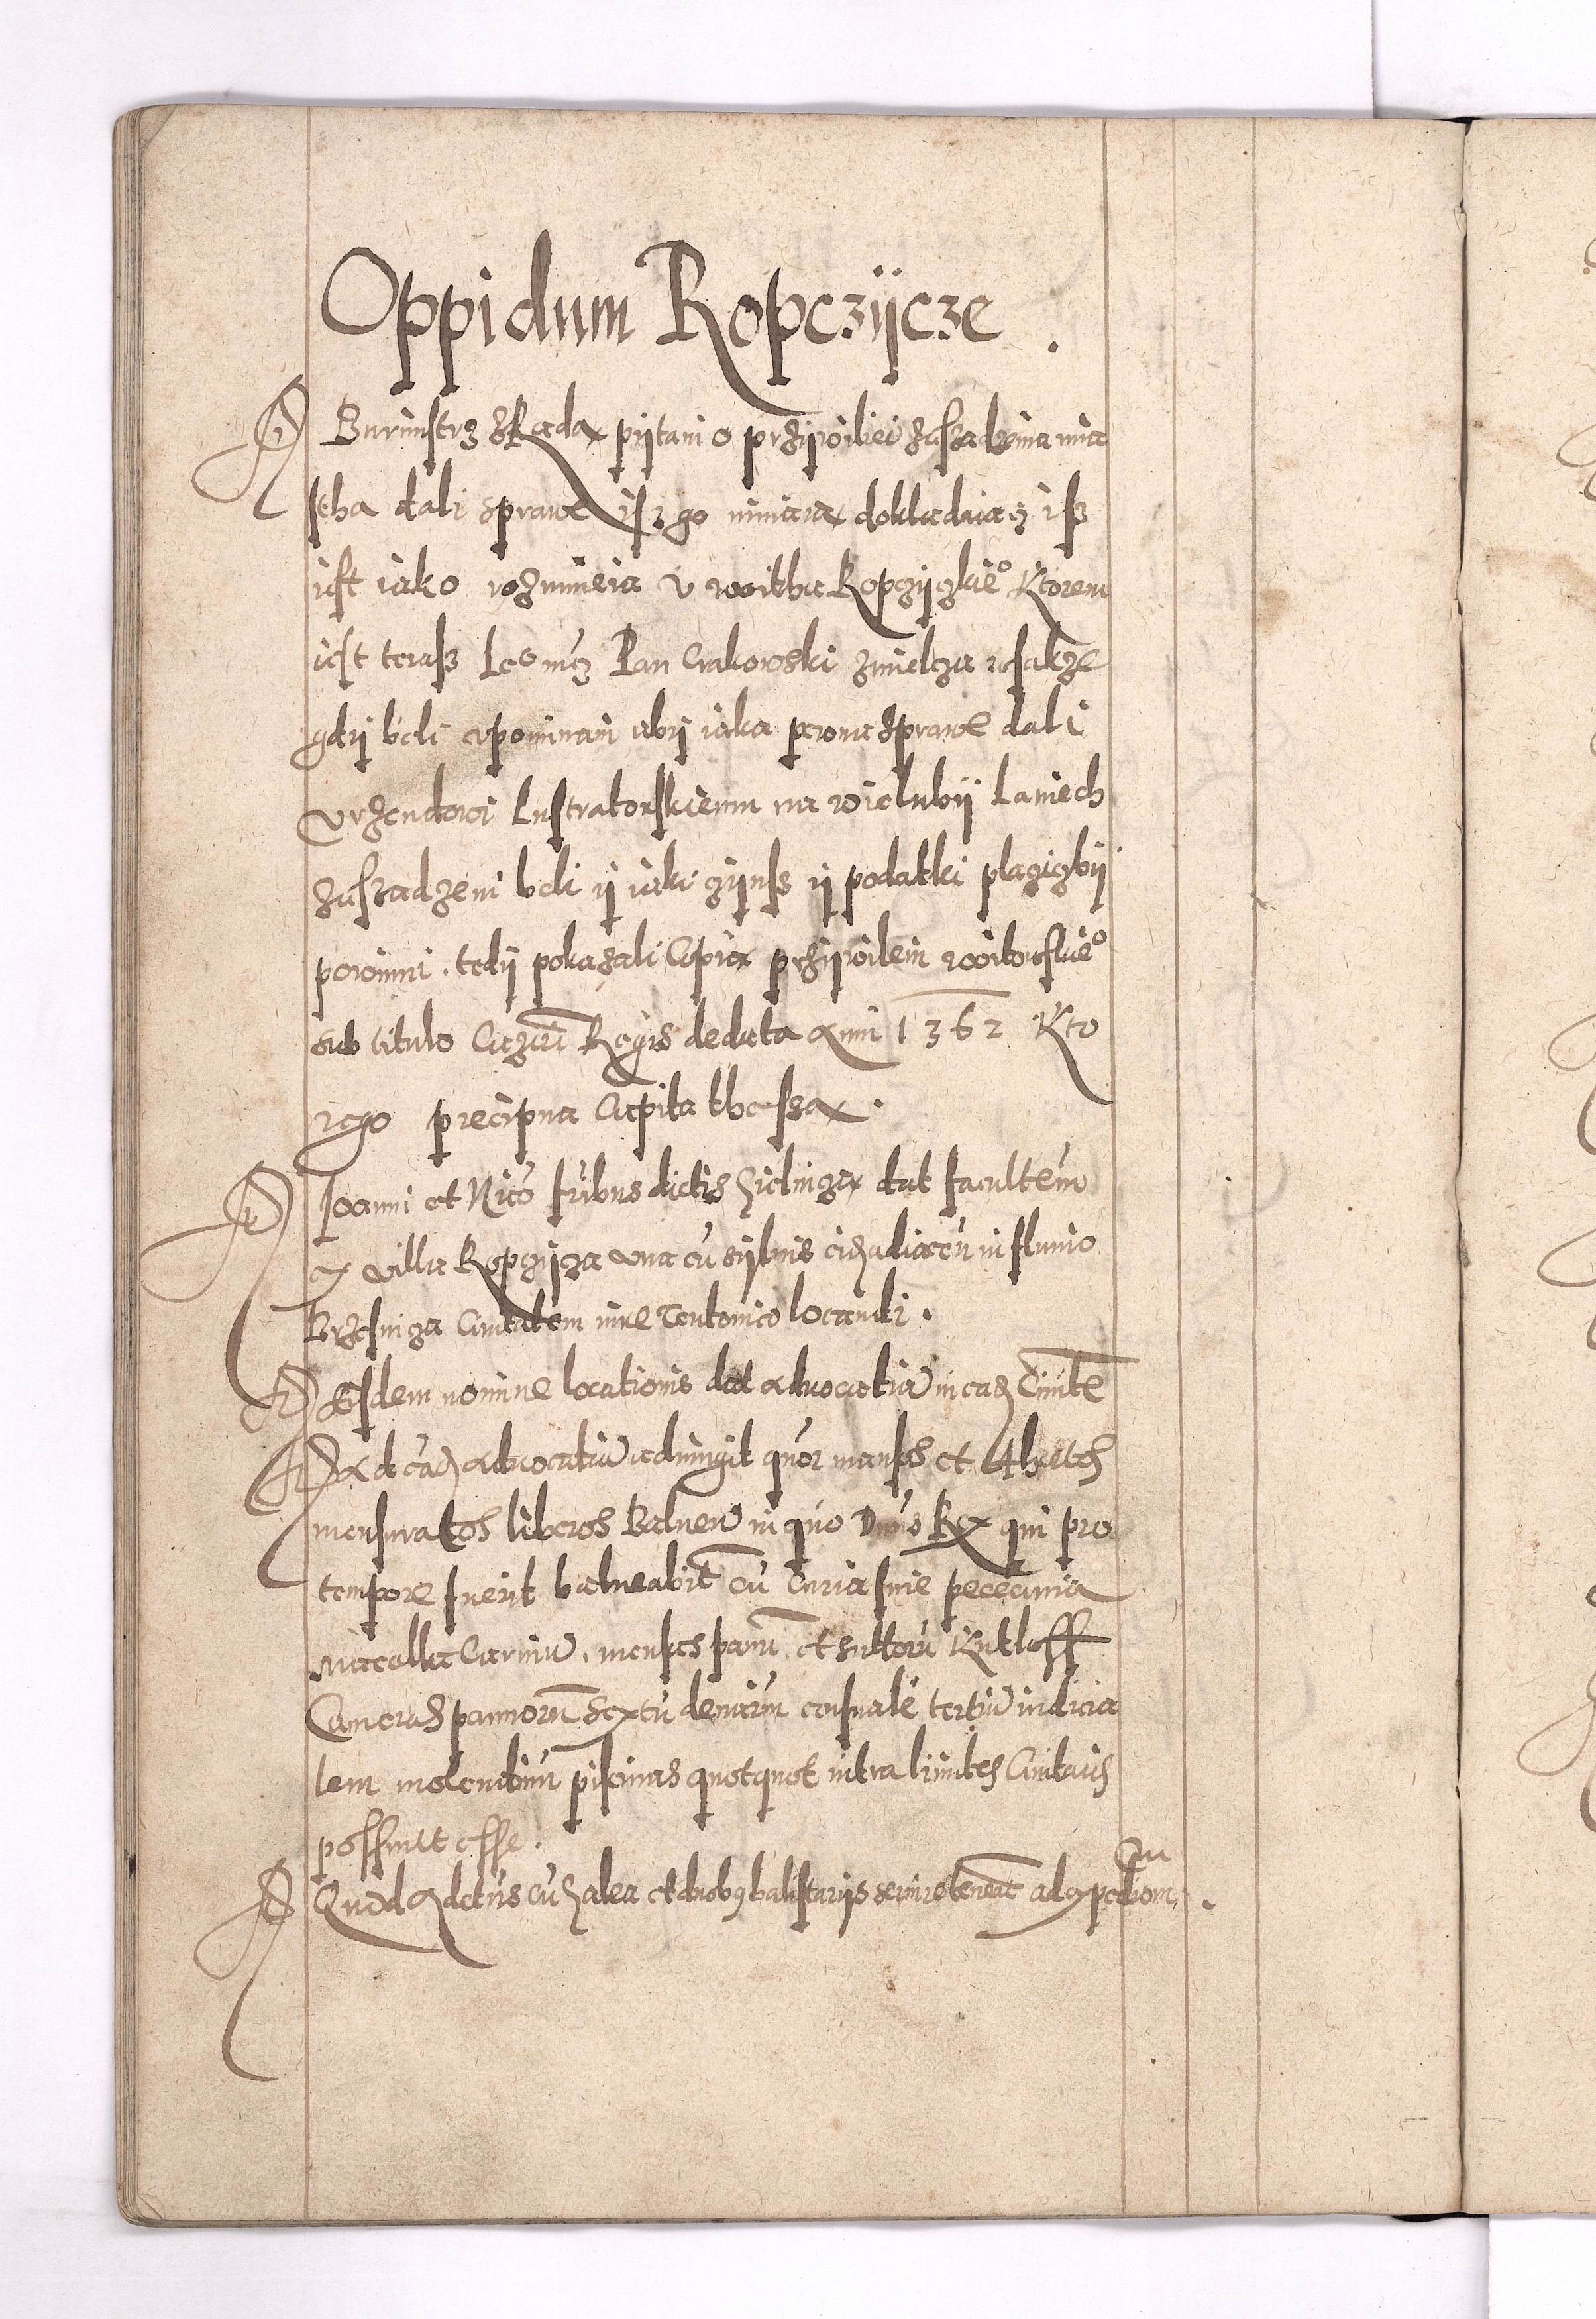 Oppidum Ropczycze.
Burmistrz z Radą pytani o przywiliei zassadzenia mia
stha dali sprawe isz go nimaią dokładaiącz isz
iest iako rozumieia v woitha Ropczyczkieº Ktorem
iest teraz Ieº mcz Pan Crakowski zmielcza wsakze
gdy beli vpominani aby iaka pewna sprawe dali
vrzendowi Lustratorskiemu na wielubÿ Laniech
zassadzeni beli y iaki czynsz y podatki placziczby
powinni. tedy pokazali Copią przywilein woitowskieº
sub titulo Cazimi Regis de data Anni 1362 Kto
rego precipua Capita the są.
Joanni et Nico fribus dictis Gielnicza dat facultem
ex villa Ropczycza vna cu sylvis ei adiacen in fluuio
Brzesnicza Ciuitatem iure Teutonico locandi.
Eisdem nomine locationis dat aduocatia in ead Ciuite
Ad ead aduocatia adiungit quor mansos et 4
mensuratos liberos Balneu in quo Dnus Rex qui pro
tempore fuerit balneabit cu Curia sine pecunia
Macella Carniu. mensas panu et suttoru Kutloff
Cameras pannoru sextu denariu censuale tertiu iudicia
lem molendinu piscinas quotquot intra limites Ciuitatis
possunt esse.
Quod cu galea et duobus balistarys seruire teneat ad expediom.
Cu